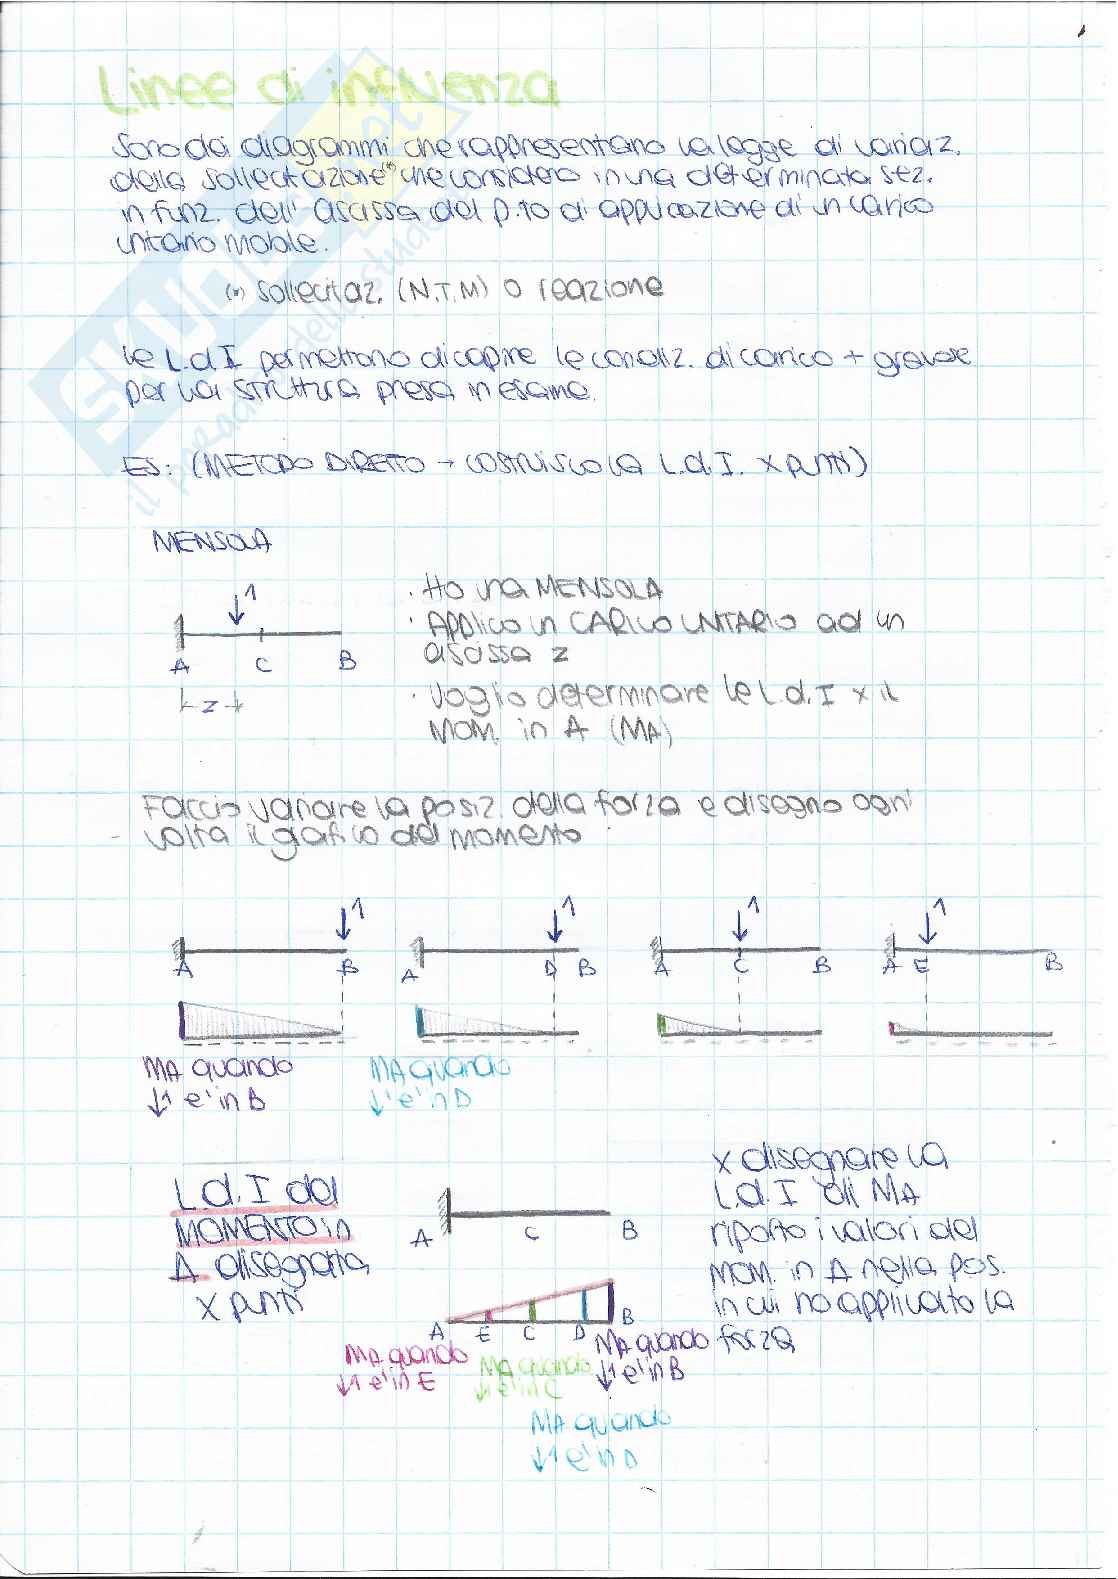 Linee di influenza
Sono dei diagrammi che rappresentano la legge di variaz.
della sollecitazione(*) che considero in una determinata sez.
in funz. dell' ascissa del p.to di applicazione di un carico
unitario mobile.
(*) sollecitaz. (N.T.M) o reazione
Le L.d.I permettono di capire le condiz. di carico + gravose
per la struttura presa in esame.
ES: (METODO DIRETTO → costruisco la L.d.I. x punti)
MENSOLA
1
A C B
z
· Ho una MENSOLA
· Applico un CARICO UNITARIO ad un
ascissa z
· Voglio determinare le L.d.I x il
MOM. in A (MA)
Faccio variare la posiz. della forza e disegno ogni
volta il grafico del momento
1 1 1 1
A B A D B A C B A E B
MA quando
↓1 e' in B
MA quando
↓1 e' in D
L.d.I del
MOMENTO in
A disegnata
x punti
A C B
A E C D B
MA quando
↓1 e' in E
MA quando
↓1 e' in C
MA quando
↓1 e' in B
MA quando
↓1 e' in D
x disegnare la
L.d.I di MA
riporto i valori del
MOM. in A nella pos.
in cui ho applicato la
forza